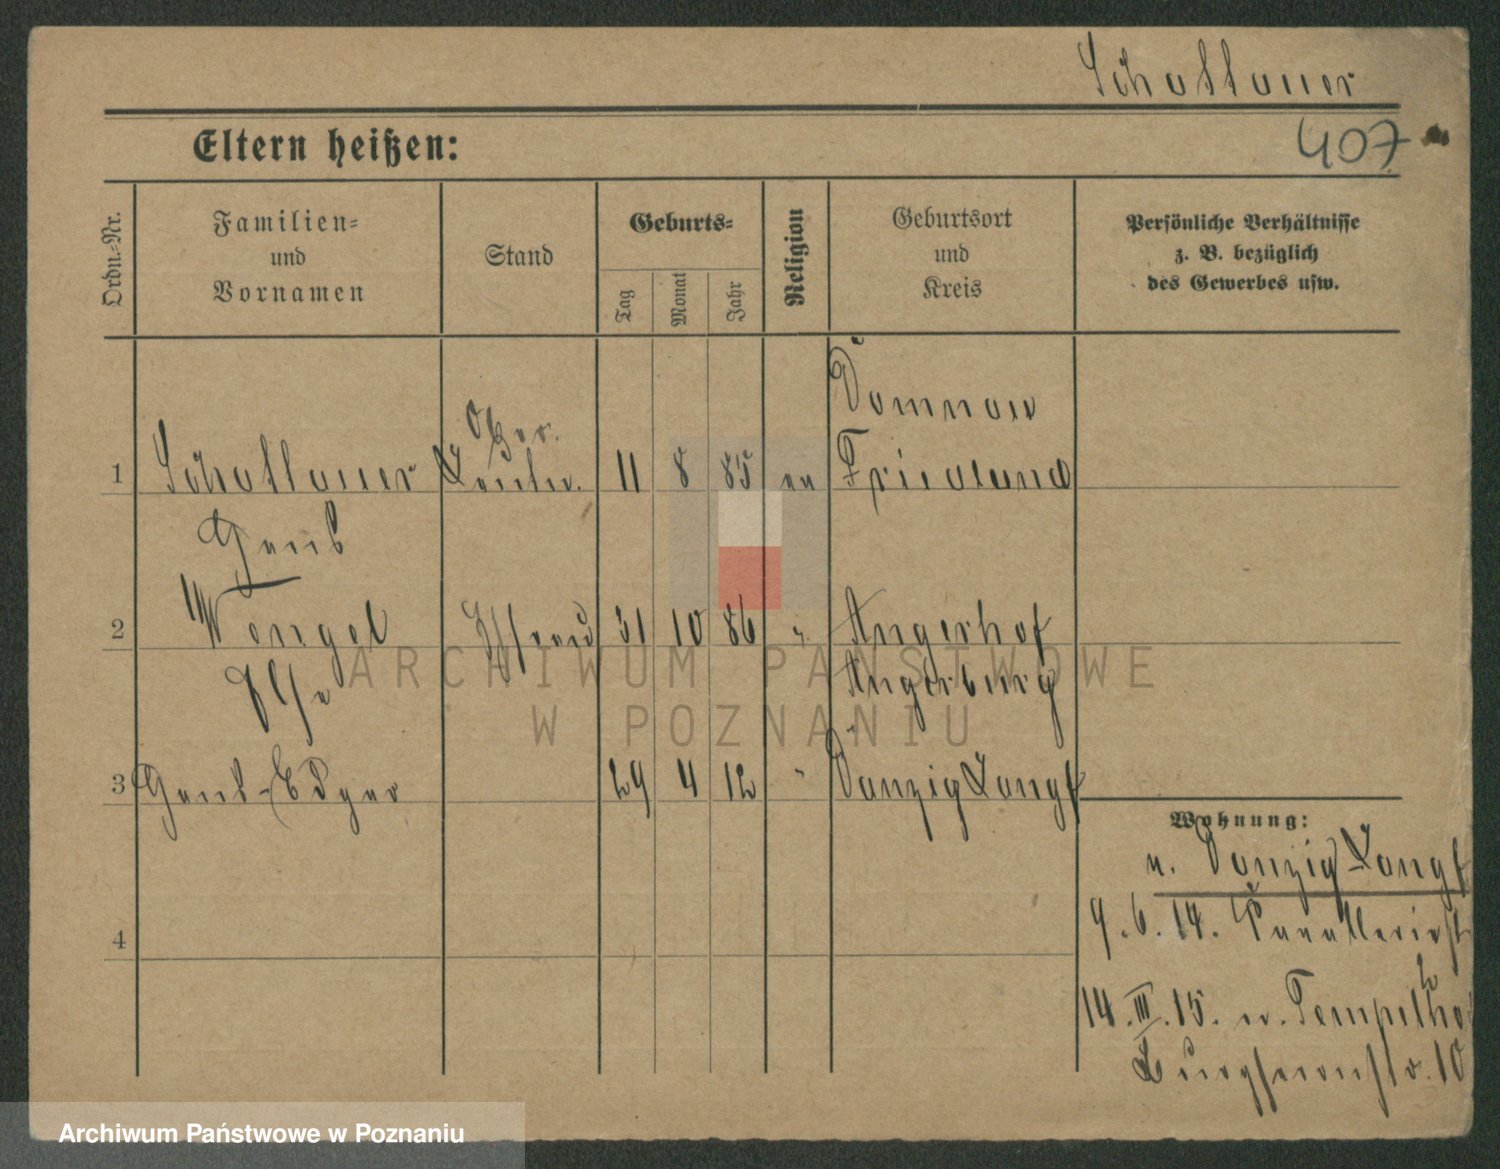 Schattauer
407
Eltern heißen:
Ordn.-Nr.
Familien-
und
Vornamen
Stand
Geburts-
Tag
Monat
Jahr
Religion
Geburtsort
und
Kreis
Persönliche Verhältnisse
z. B. bezüglich
des Gewerbes usw.
Domnau
Ober
1 Schattauer Leutn. 11 8 85 ev Friedland
Hans
2 Wengel Ehefrau 31 10 86 " Angerhof
Ilse Angerburg
3 Hans-Edgar 29 4 12 " Danzig Langf
Wohnung:
n. Danzig Langf
9.6.14.
4
14.III.15. n. Tempelho
Burgherrnstr. 10
ARCHIWUM PAŃSTWOWE
W POZNANIU
Archiwum Państwowe w Poznaniu